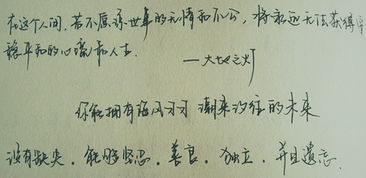 在这个人间，若不原谅世事的无情和不公，将永远无法获得
稳平和的心境和人生.
——大地之灯
你能拥有海风习习 潮来汐往的未来
没有缺失. 能够坚忍. 善良. 独立. 并且遗忘.